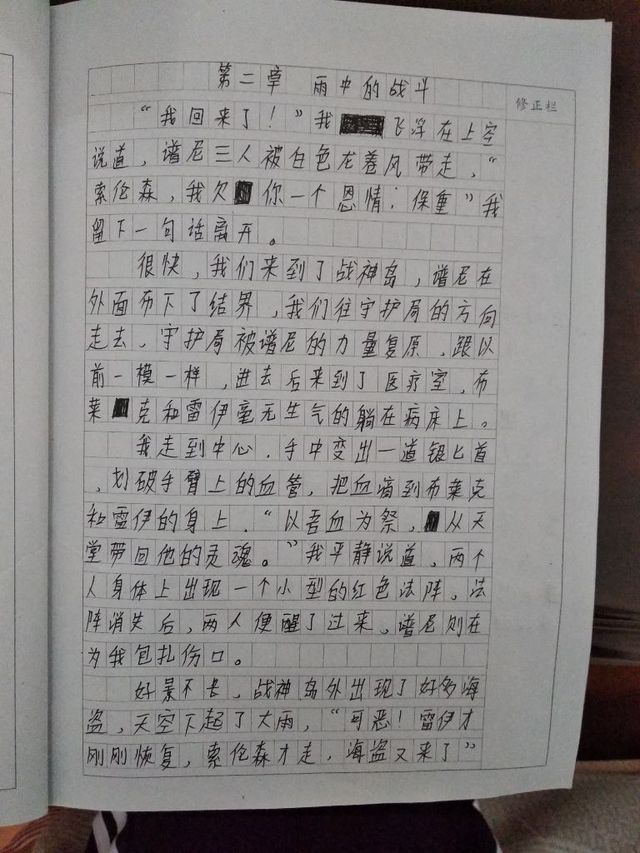 第二章 雨中的战斗
修正栏
“我回来了！”我飞浮在上空
说道，谱尼三人被白色龙卷风带走，“
索伦森，我欠你一个恩情；保重”我
留下一句话离开。
很快，我们来到了战神岛，谱尼在
外面布下了结界，我们往守护局的方向
走去，守护局被谱尼的力量复原，跟以
前一模一样，进去后来到了医疗室，布
莱克和雷伊毫无生气的躺在病床上。
我走到中心，手中变出一道银匕首
，划破手臂上的血管，把血滴到布莱克
和雷伊的身上，“以吾血为祭，从天
堂带回他的灵魂。”我平静说道，两个
人身体上出现一个小型的红色法阵。法
阵消失后，两人便醒了过来。谱尼则在
为我包扎伤口。
好景不长，战神岛外出现了好多海
盗，天空下起了大雨，“可恶！雷伊才
刚刚恢复，索伦森才走，海盗又来了”